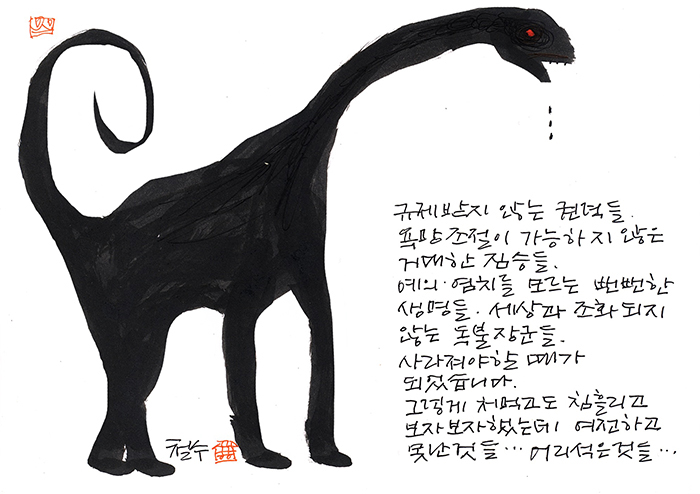 규제받지 않는 권력들.
욕망조절이 가능하지 않은
거대한 짐승들.
예의·염치를 모르는 뻔뻔한
생명들. 세상과 조화되지
않는 독불장군들.
사라져야할 때가
되었습니다.
그렇게 처먹고도 침흘리고
보자보자했는데 여전하고
못난것들… 어리석은것들…
철수